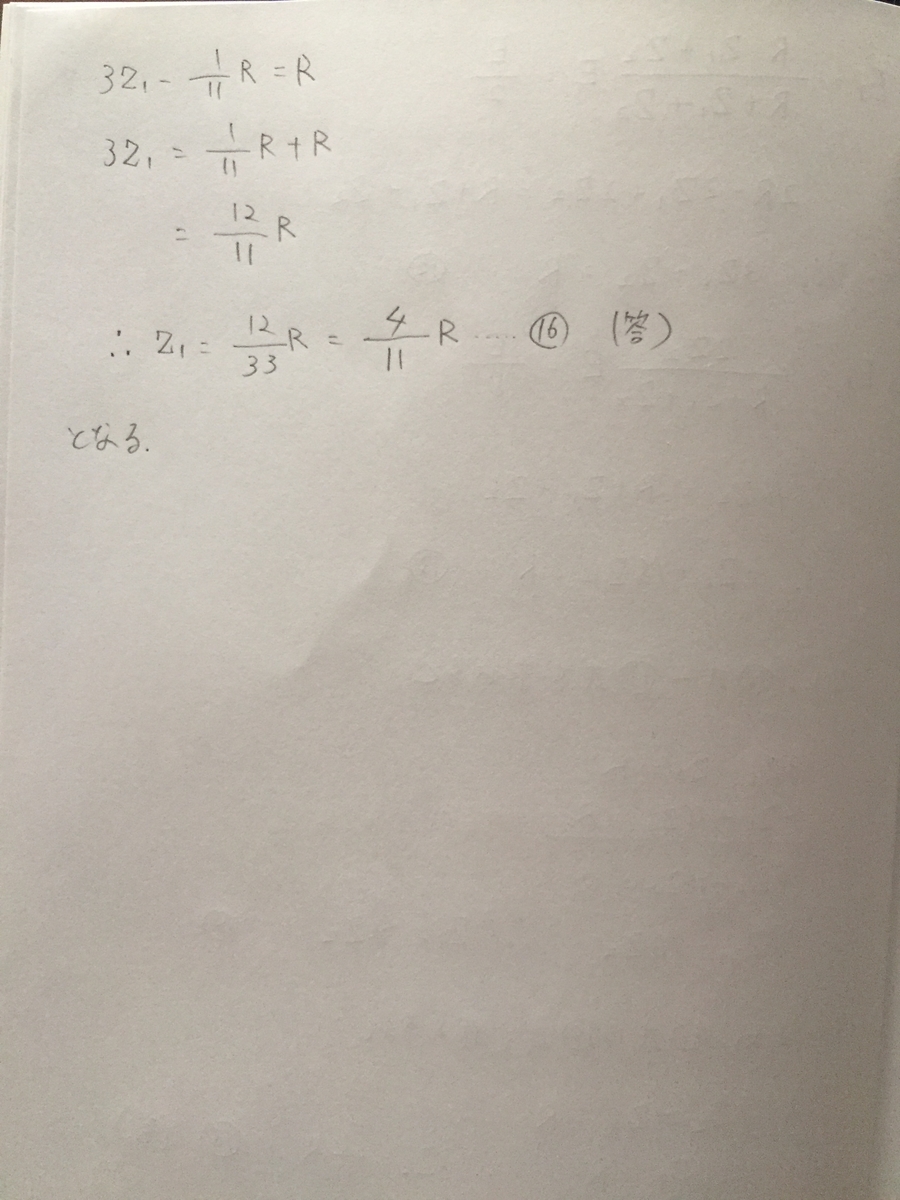 3Z₁ - 1/11 R = R
3Z₁ = 1/11 R + R
= 12/11 R
∴ Z₁ = 12/33 R = 4/11 R ‥‥ ⑯ (答)
となる.